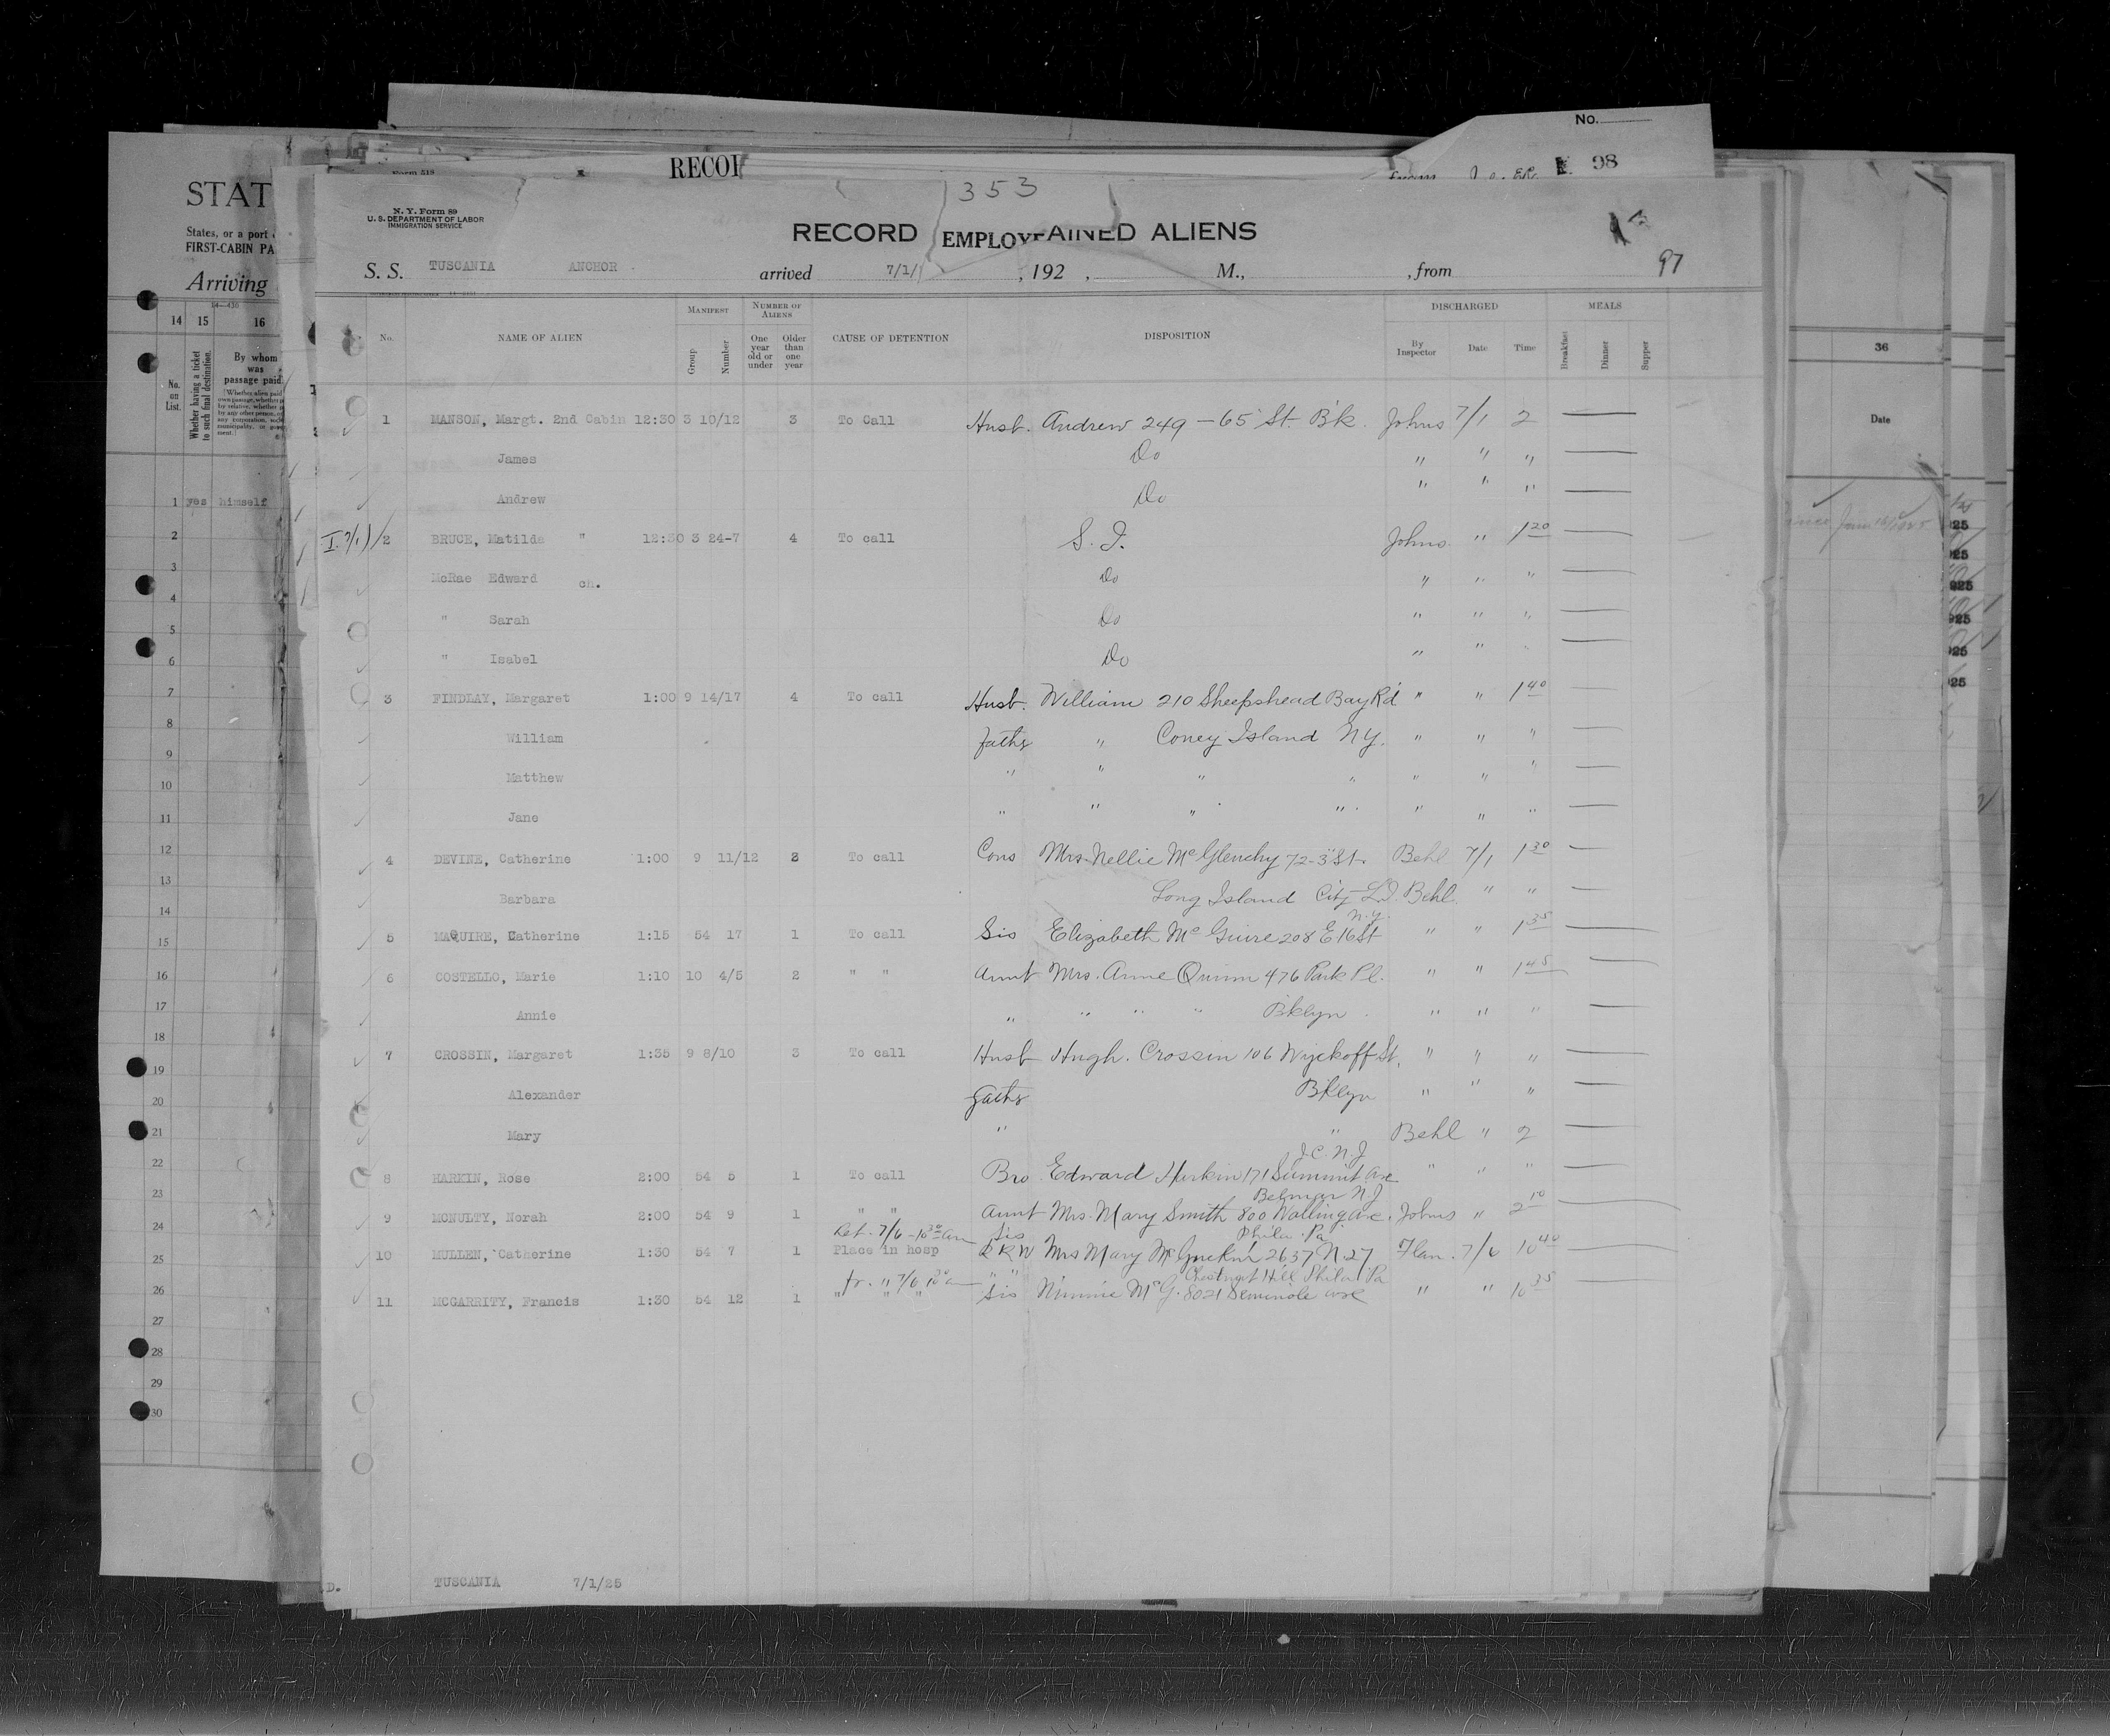 No.
RECOR
98
353
STAT
N. Y. Form 89
U. S. DEPARTMENT OF LABOR
IMMIGRATION SERVICE
RECORD EMPLOY AINED ALIENS
States, or a port
FIRST-CABIN PA
97
S. S. TUSCANIA ANCHOR arrived 7/1/ , 192 , M., , from
Arriving
14 15 16
No. on List.
Whether having a ticket to such final destination.
By whom was passage paid?
36
Date
No. NAME OF ALIEN MANIFEST Group Number NUMBER OF ALIENS One year old or under Older than one year CAUSE OF DETENTION DISPOSITION DISCHARGED By Inspector Date Time MEALS Breakfast Dinner Supper
1 yes himself
1 MANSON, Margt. 2nd Cabin 12:30 3 10/12 3 To Call Husb. Andrew 249 - 65 St. Bk. Johns 7/1 2
James Do " " "
Andrew Do " " "
2 BRUCE, Matilda " 12:30 3 24-7 4 To call S. I. Johns. " 1 20
McRae Edward ch. Do " " "
" Sarah Do " " "
" Isabel Do " "
3 FINDLAY, Margaret 1:00 9 14/17 4 To call Husb. William 210 Sheepshead Bay Rd " " 1 40
William Fathr " Coney Island N.Y. " " "
Matthew " " " " " " "
Jane " " " " " " "
4 DEVINE, Catherine 1:00 9 11/12 2 To call Cous Mrs. Nellie McGlenchy 72-3 St. Behl 7/1 1 30
Barbara Long Island City L.I. Behl. " "
N.Y.
5 MAQUIRE, Catherine 1:15 54 17 1 To call Sis Elizabeth McGuire 208 E 16 St " " 1 35
6 COSTELLO, Marie 1:10 10 4/5 2 " " Aunt Mrs. Anne Quinn 476 Park Pl. " " 1 45
Annie " " " " Bklyn " " "
7 CROSSIN, Margaret 1:35 9 8/10 3 To call Husb Hugh. Crossin 106 Wyckoff St. " " "
Alexander Fathr Bklyn " " "
Mary " " Behl " 2
J.C. N.J
8 HARKIN, Rose 2:00 54 5 1 To call Bro Edward Harkin 171 Summit Ave " " "
Belmar N.J
9 MCNULTY, Norah 2:00 54 9 1 " " Aunt Mrs. Mary Smith 800 Walling Ave. Johns " 2 10
Ret. 7/6 - 10 30 am Sis Phila. Pa
10 MULLEN, Catherine 1:30 54 7 1 Place in hosp Mrs Mary 2637 N. 27 Flan. 7/6 10 40
tr. " 7/6 " " Chestnut Hill Phila Pa
11 MCGARRITY, Francis 1:30 54 12 1 " " " Sis Minnie McG. 8021 Seminole Ave " " 10 35
2
3
4
5
6
7
8
9
10
11
12
13
14
15
16
17
18
19
20
21
22
23
24
25
26
27
28
29
30
925
925
925
925
925
925
D. TUSCANIA 7/1/25